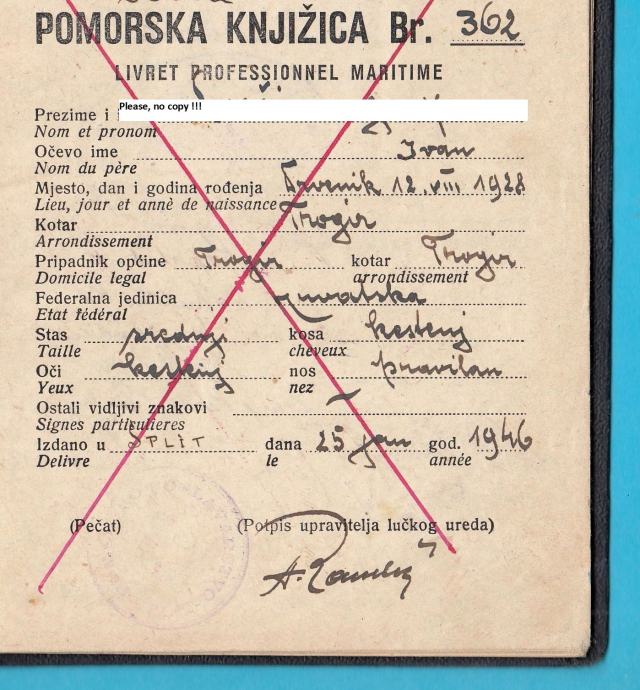 POMORSKA KNJIŽICA Br. 362
LIVRET PROFESSIONNEL MARITIME
Please, no copy !!!
Prezime i
Nom et pronom
Očevo ime Ivan
Nom du père
Mjesto, dan i godina rođenja Drvenik 12. VIII. 1928
Lieu, jour et annè de naissance
Kotar Trogir
Arrondissement
Pripadnik općine Trogir kotar Trogir
Domicile legal arrondissement
Federalna jedinica Hrvatska
Etat fédéral
Stas srednji kosa kestenj
Taille cheveux
Oči kestenj nos pravilan
Yeux nez
Ostali vidljivi znakovi
Signes partisulieres
Izdano u SPLIT dana 25 jan god. 1946
Delivre le année
(Pečat) (Potpis upravitelja lučkog ureda)